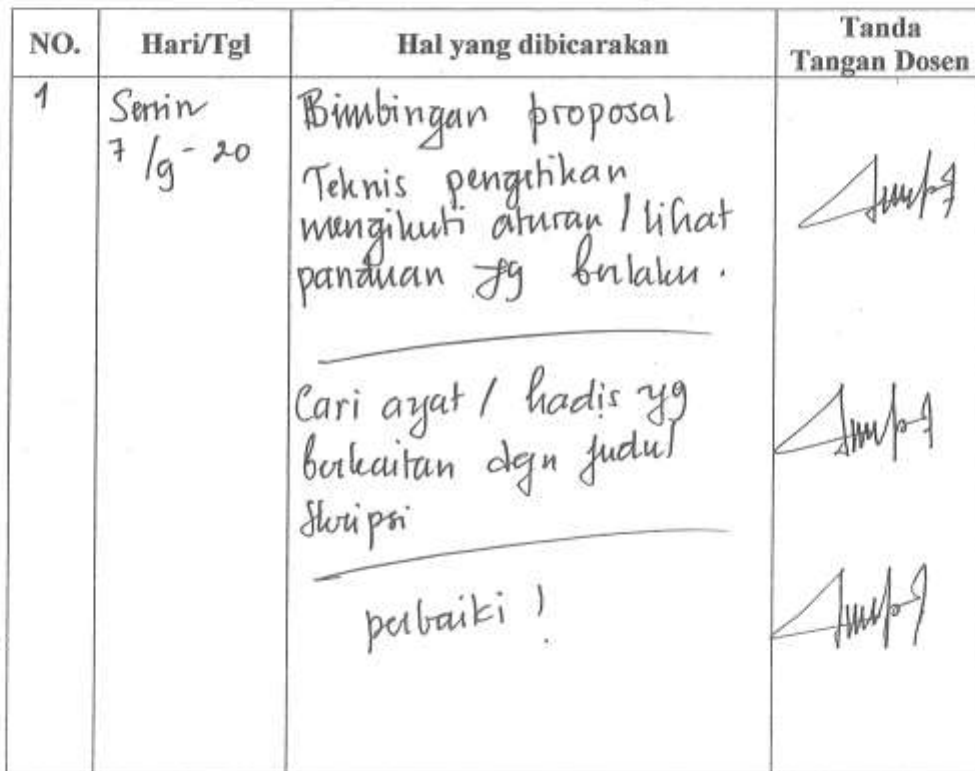 NO.
Hari/Tgl
Hal yang dibicarakan
Tanda
Tangan Dosen
1
Senin
7/9-20
Bimbingan proposal
Teknis pengetikan
mengikuti aturan / lihat
panduan yg berlaku.
Cari ayat / hadis yg
berkaitan dgn judul
Skripsi
perbaiki !